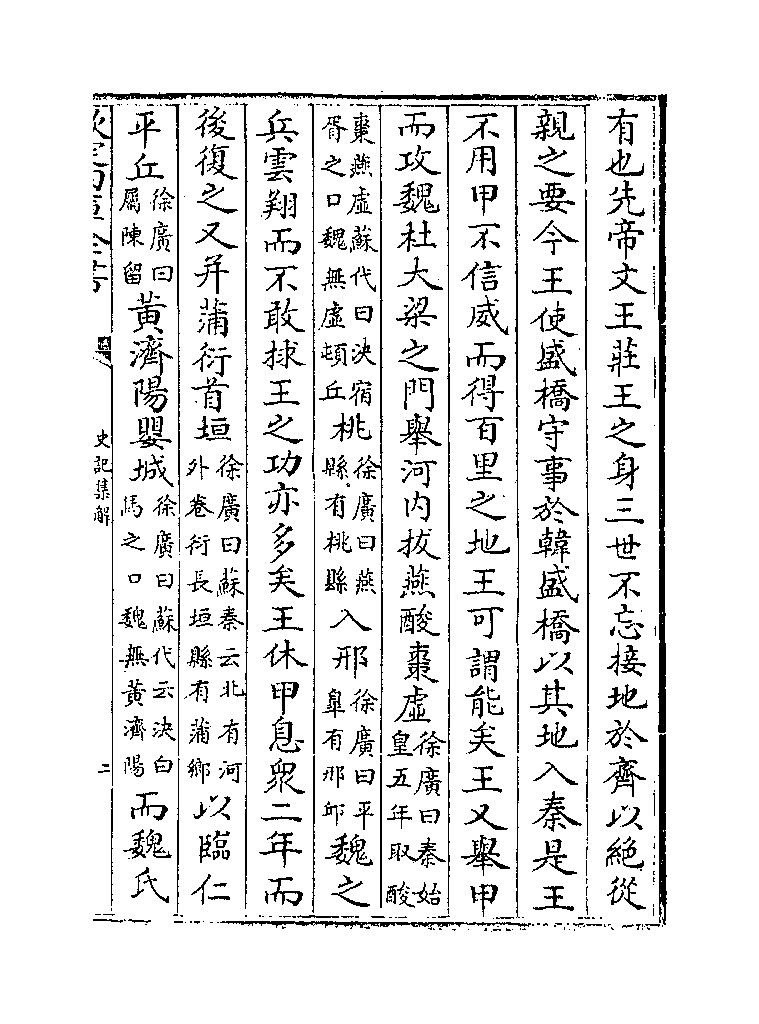 有也先帝文王莊王之身三世不忘接地於齊以絶從
親之要今王使盛橋守事於韓盛橋以其地入秦是王
不用甲不信威而得百里之地王可謂能矣王又舉甲
而攻魏杜大梁之門舉河内拔燕酸棗虛徐廣曰秦始皇五年取酸
棗燕虛蘇代曰決宿胥之口魏無虛頓丘桃徐廣曰燕縣有桃縣入邢徐廣曰平臯有邢邱魏之
兵雲翔而不敢捄王之功亦多矣王休甲息衆二年而
後復之又并蒲衍首垣徐廣曰蘇秦云北有河外卷衍長垣縣有蒲鄉以臨仁
平丘徐廣曰屬陳留黄濟陽嬰城徐廣曰蘇代云決白馬之口魏無黄濟陽而魏氏
欽定四庫全書
史記集解
二